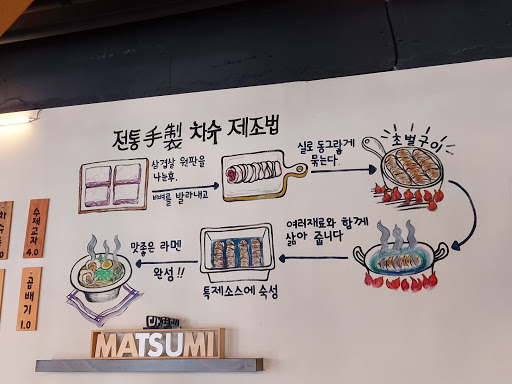 전통 手製 차슈 제조법
삼겹살 원판을
나눈후.
뼈를 발라내고
실로 동그랗게
묶는다.
초벌구이
여러재료와 함께
삶아 줍니다
특제소스에 숙성
맛좋은 라멘
완성!!
수제교자
4.0
곱배기
1.0
MATSUMI